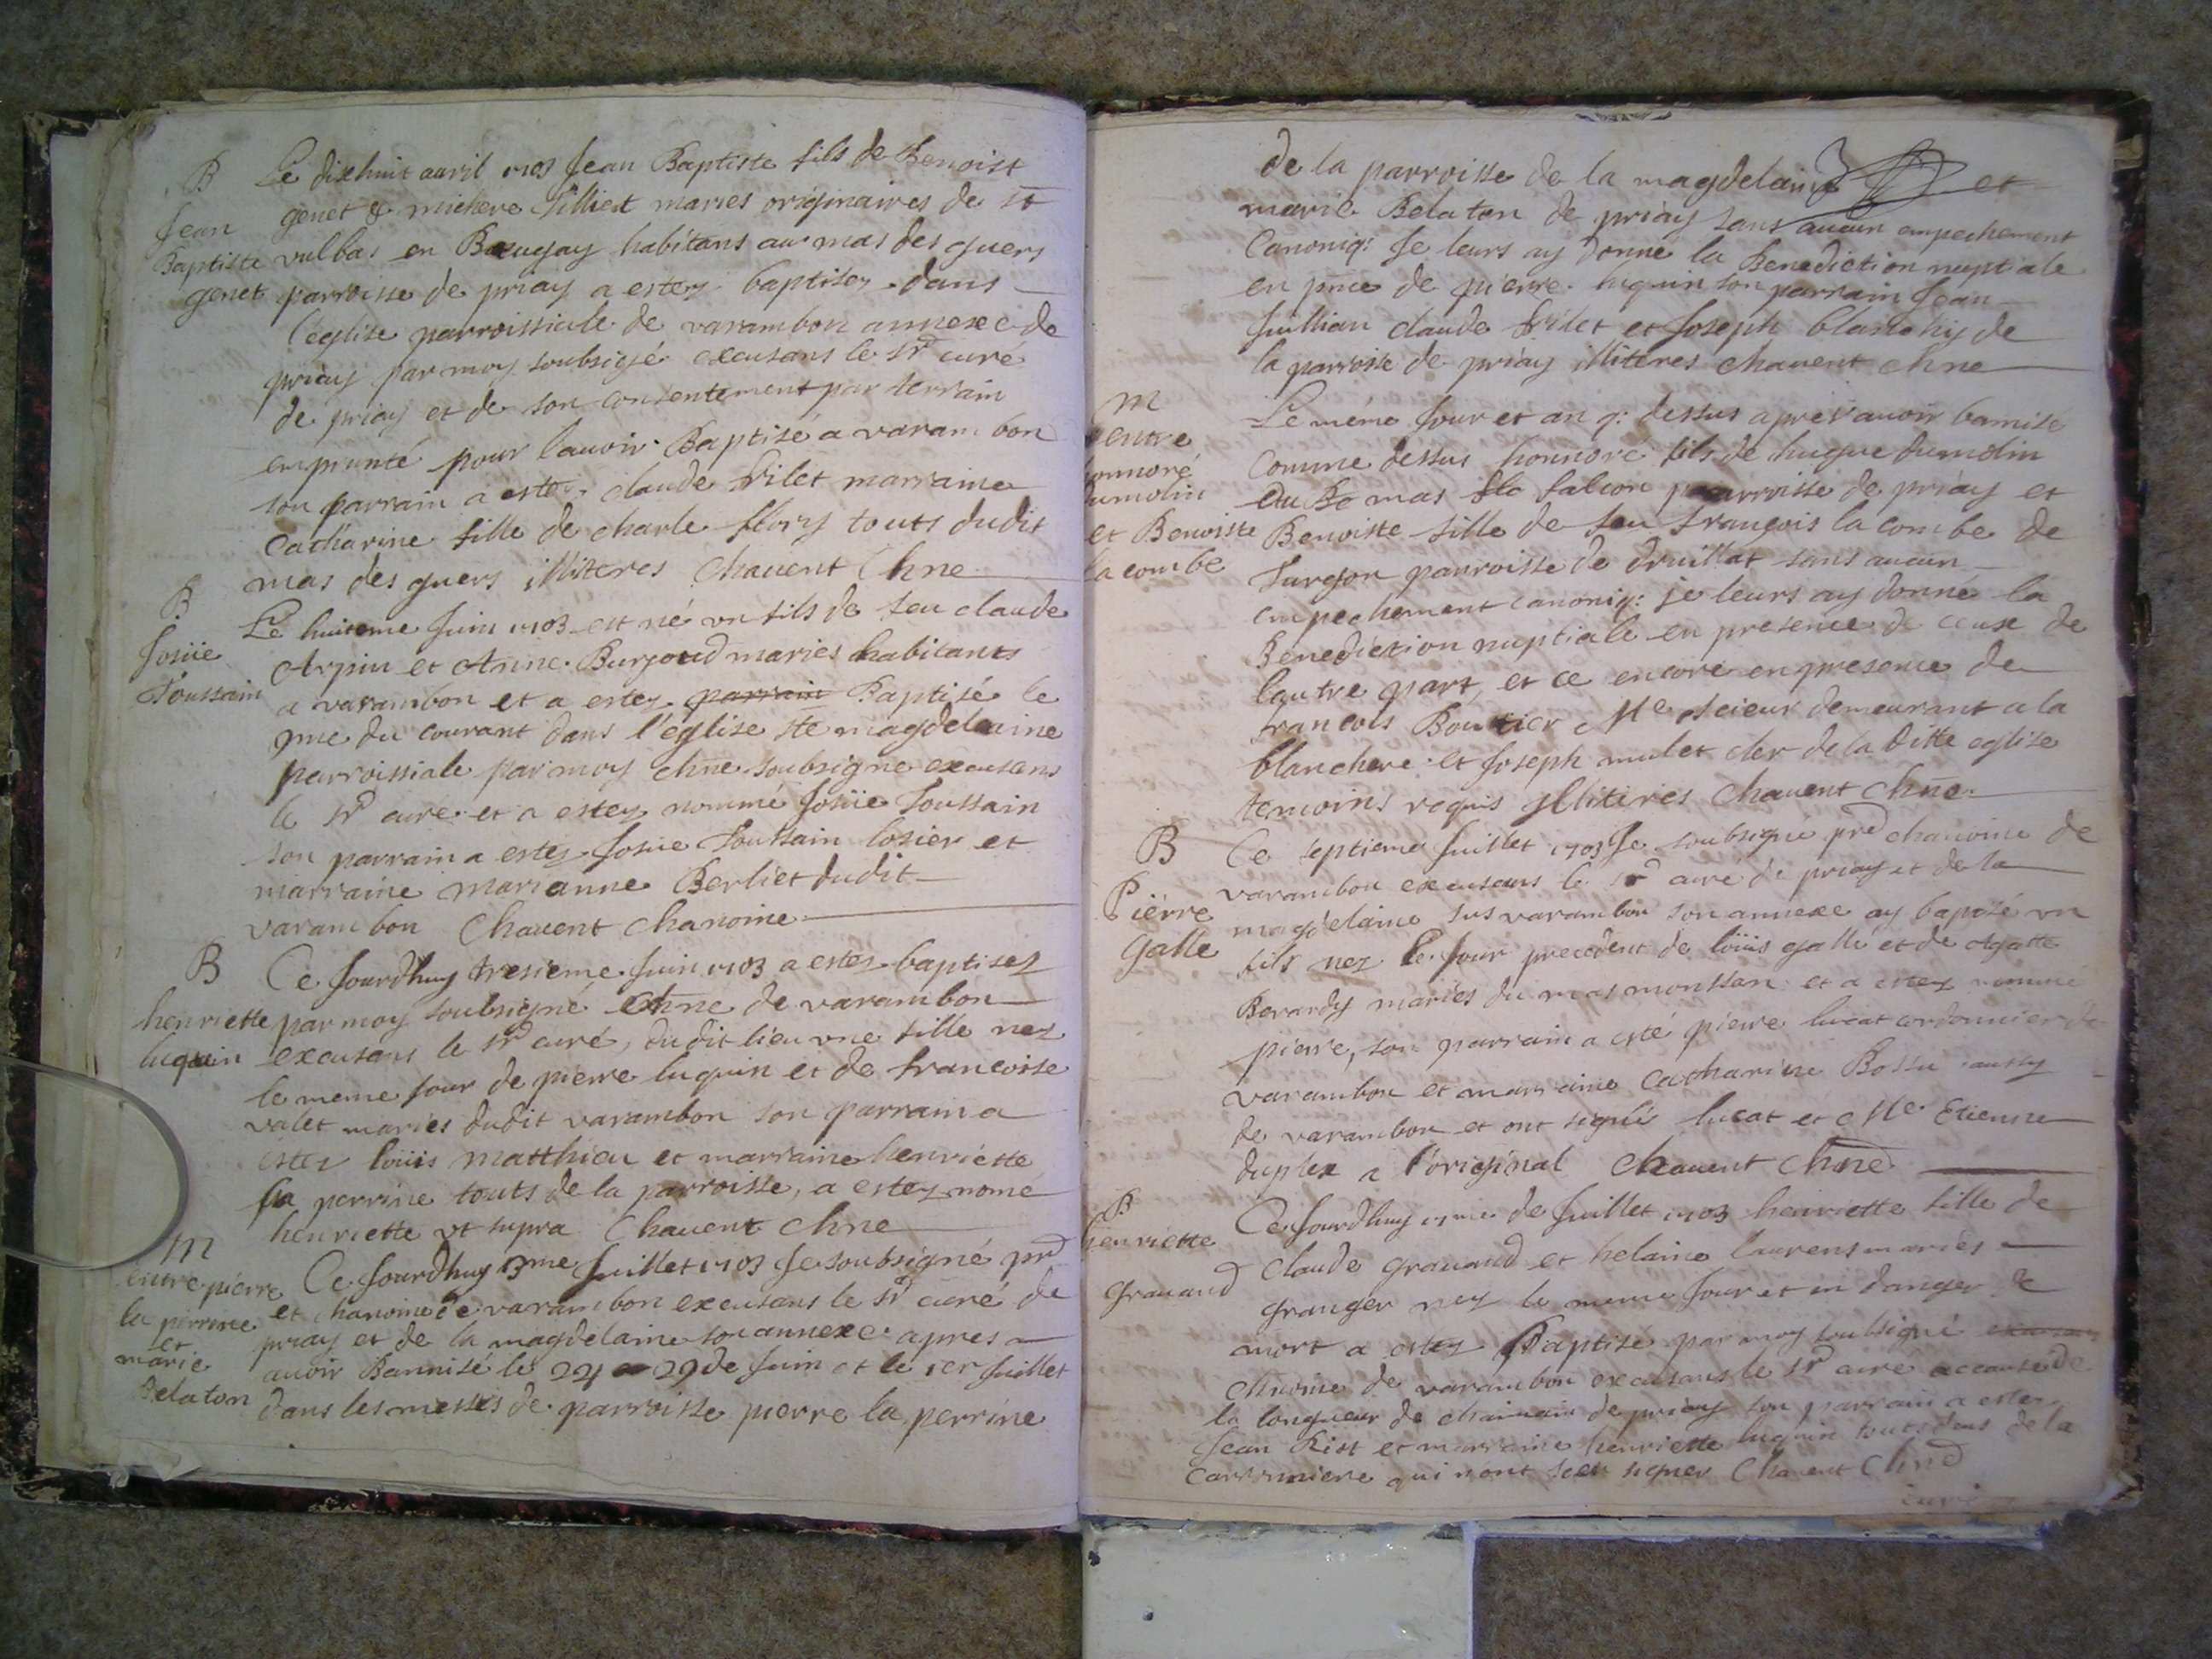 B
Jean
Baptiste
genet
Le dixhuit auril 1703 Jean Baptiste fils de Benoist
genet & michere Silliet maries originaires de st
vulbas en Beaugay habitans au mas des guers
parroisse de priay a estey baptisey dans
l'eglise parroissiale de varambon annexe de
priay par moy soubsigé excusans le sr curé
de priay et de son consentement par terrain
emprunté pour lauoir Baptisé a varambon
son parrain a estey claude frilet marraine
Catharine fille de charle flory touts dudit
mas des guers illiteres Chauent Chne
B
Josüe
Toussain
Le huiteme Juin 1703 est né un fils de feu claude
Arpin et Anne Burgoud maries habitants
a varambon et a estey parrain Baptisé le
9me du courant dans l'église ste magdelaine
parroissiale par moy chne soubsigne excusans
le sr curé et a estey nommé Josüe Toussain
son parrain a estey Josüe Toussain losier et
marraine marianne Berliet dudit
varambon Chauent chanoine
B
henriette
luquin
Ce Jourdhuy tresieme Juin 1703 a estey baptisey
par moy soubsigné Chne de varambon
excusans le sr curé, dudit lieu vne fille nez
le meme Jour de pierre luquin et de francoise
valet maries dudit varambon son parrain a
estey loüis matthieu et marraine henriette
la perrine touts de la parroisse, a estey nomé
henriette vt supra Chauent chne
m
entre pierre
la perrine
et
marie
Belaton
Ce Jourdhuy 3me Juillet 1703 Je soubsigné prd
et chanoine de varambon excusans le sr curé de
priay et de la magdelaine son annexe apres
auoir Bannisé le 24 29 de Juin et le 1er Juillet
dans les messes de parroisse pierre la perrine
de la parroisse de la magdelaine et
marie Belaton de priay sans aucun empechement
Canoniq: Je leurs ay donné la Benediction nuptiale
en pnce de pierre luquin son parrain Jean
Juillian claude frilet et Joseph blanchy de
la parroisse de priay illiteres chauent chne
m
entre
honnoré
dumolin
et Benoiste
la combe
Le méme Jour et an q: dessus apres auoir bannise
Comme dessus honnoré fils de hugue dumolin
du mas falcon parroisse de priay et
Benoiste fille de feu françois la combe de
Turgon parroisse de druillat sans aucun
empechement canoniq: je leurs ay donné la
Benediction nuptiale en presence de ceux de
lautre part, et ce encore en presence de
francois Boutier Me scieur demeurant a la
blanchere et Joseph mulet cler de la ditte eglise
temoins requis Illiteres Chauent chne
B
Pierre
galle
Ce septieme Juillet 1703 Je soubsigné prd chanoine de
varambon excusans le sr curé de priay et de la
magdelaine sus varambon son annexe ay baptisé vn
fils nez le Jour precedent de loüis galle et de Agatte
Berardy maries du mas moussan et a estey nommé
pierre, son parrain a esté pierre lucat cordonnier de
varambon et marraine Catharine Bossu aussy
de varambon et ont signés lucat et Me Etienne
duplex a l'original Chauent Chne
B
henriette
Grauand
Ce Jourdhuy 17me de Juillet 1703 henriette fille de
claude grauand et helaine laurens maries
granger ney le meme Jour et en danger de
mort a estey Baptisé par moy soubsigné
chnoine de varambon excusans le sr curé a cause de
la longueur de chaimain de priay son parrain a estey
Jean Rist et marraine henriette luquin touts deus de la
Carronniere qui n'ont sceu signer Chauent Chne